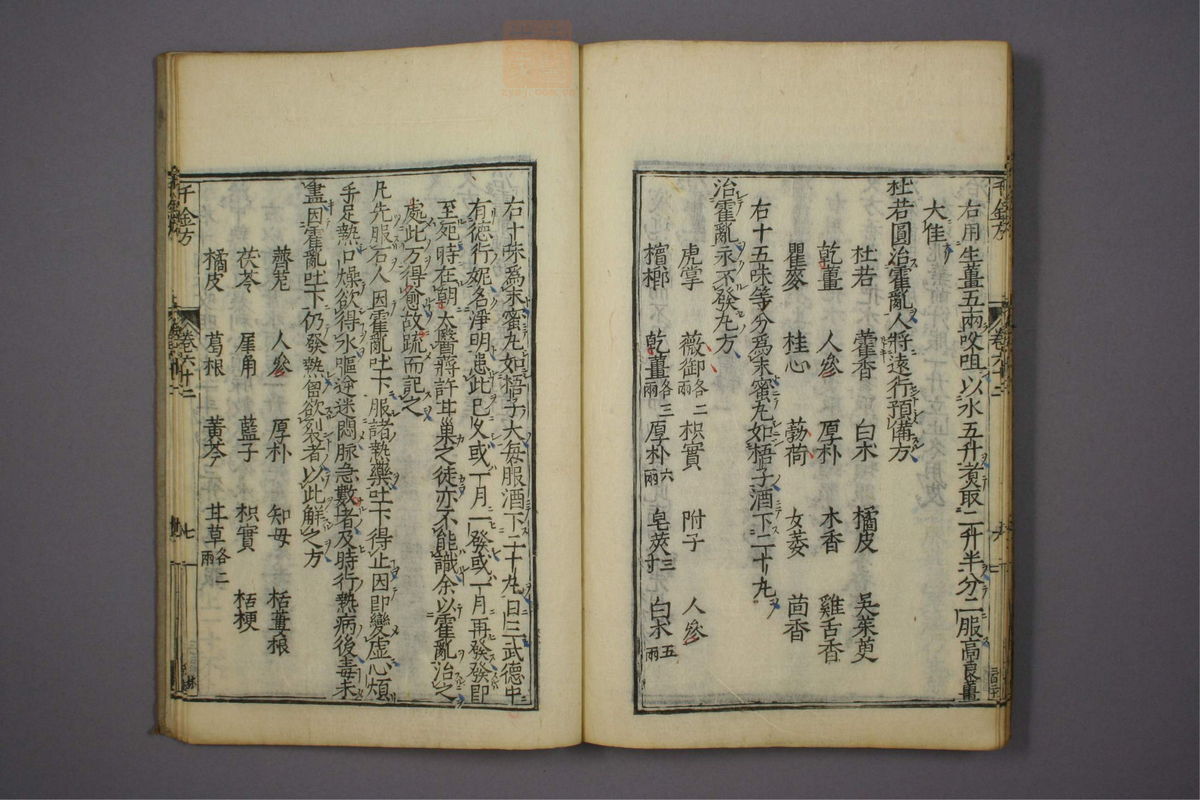 右用生薑五兩㕮咀以水五升煮取二升半分二服高良薑
大佳
杜若圓治霍亂人將遠行預備方
杜若 藿香 白朮 橘皮 吳茱萸
乾薑 人參 厚朴 木香 雞舌香
瞿麥 桂心 薜荔 女萎 茴香
右十五味等分爲末蜜丸如梧子酒下二十丸
治霍亂永不發丸方
虎掌 薇御各二兩 枳實 附子 人參
檳榔 乾薑各三兩 厚朴六兩 皂莢三寸 白朮五兩
千金方 卷六十二
右十味爲末蜜丸如梧子大每服酒下二十丸日三武德中
有德行妮名淨明患此已久或一月一發或一月再發發即
至死時在朝太醫蔣許甘巢之徒亦不能識余以霍亂治之
處此方得愈故疏而記之
凡先服石人因霍亂吐下服諸熱藥吐下得止因即變虛心煩
手足熱口燥欲得水嘔逆迷悶脉急數者及時行熱病後毒未
盡因霍亂吐下仍發熱胷欲裂者以此解之方
薺苨 人參 厚朴 知母 栝蔞根
茯苓 犀角 藍子 枳實 桔梗
橘皮 葛根 黃芩 甘草各二兩
千金方 卷六十二 七